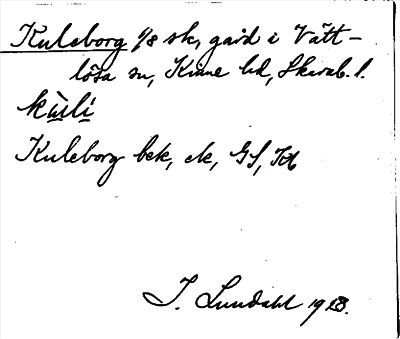 Kuleborg 1/8 sk, gård i Vätt-
lösa sn, Kinne hd, Skarab. l.
kùli
Kuleborg bek, ek, GS, Kb
I. Lundahl 1928.